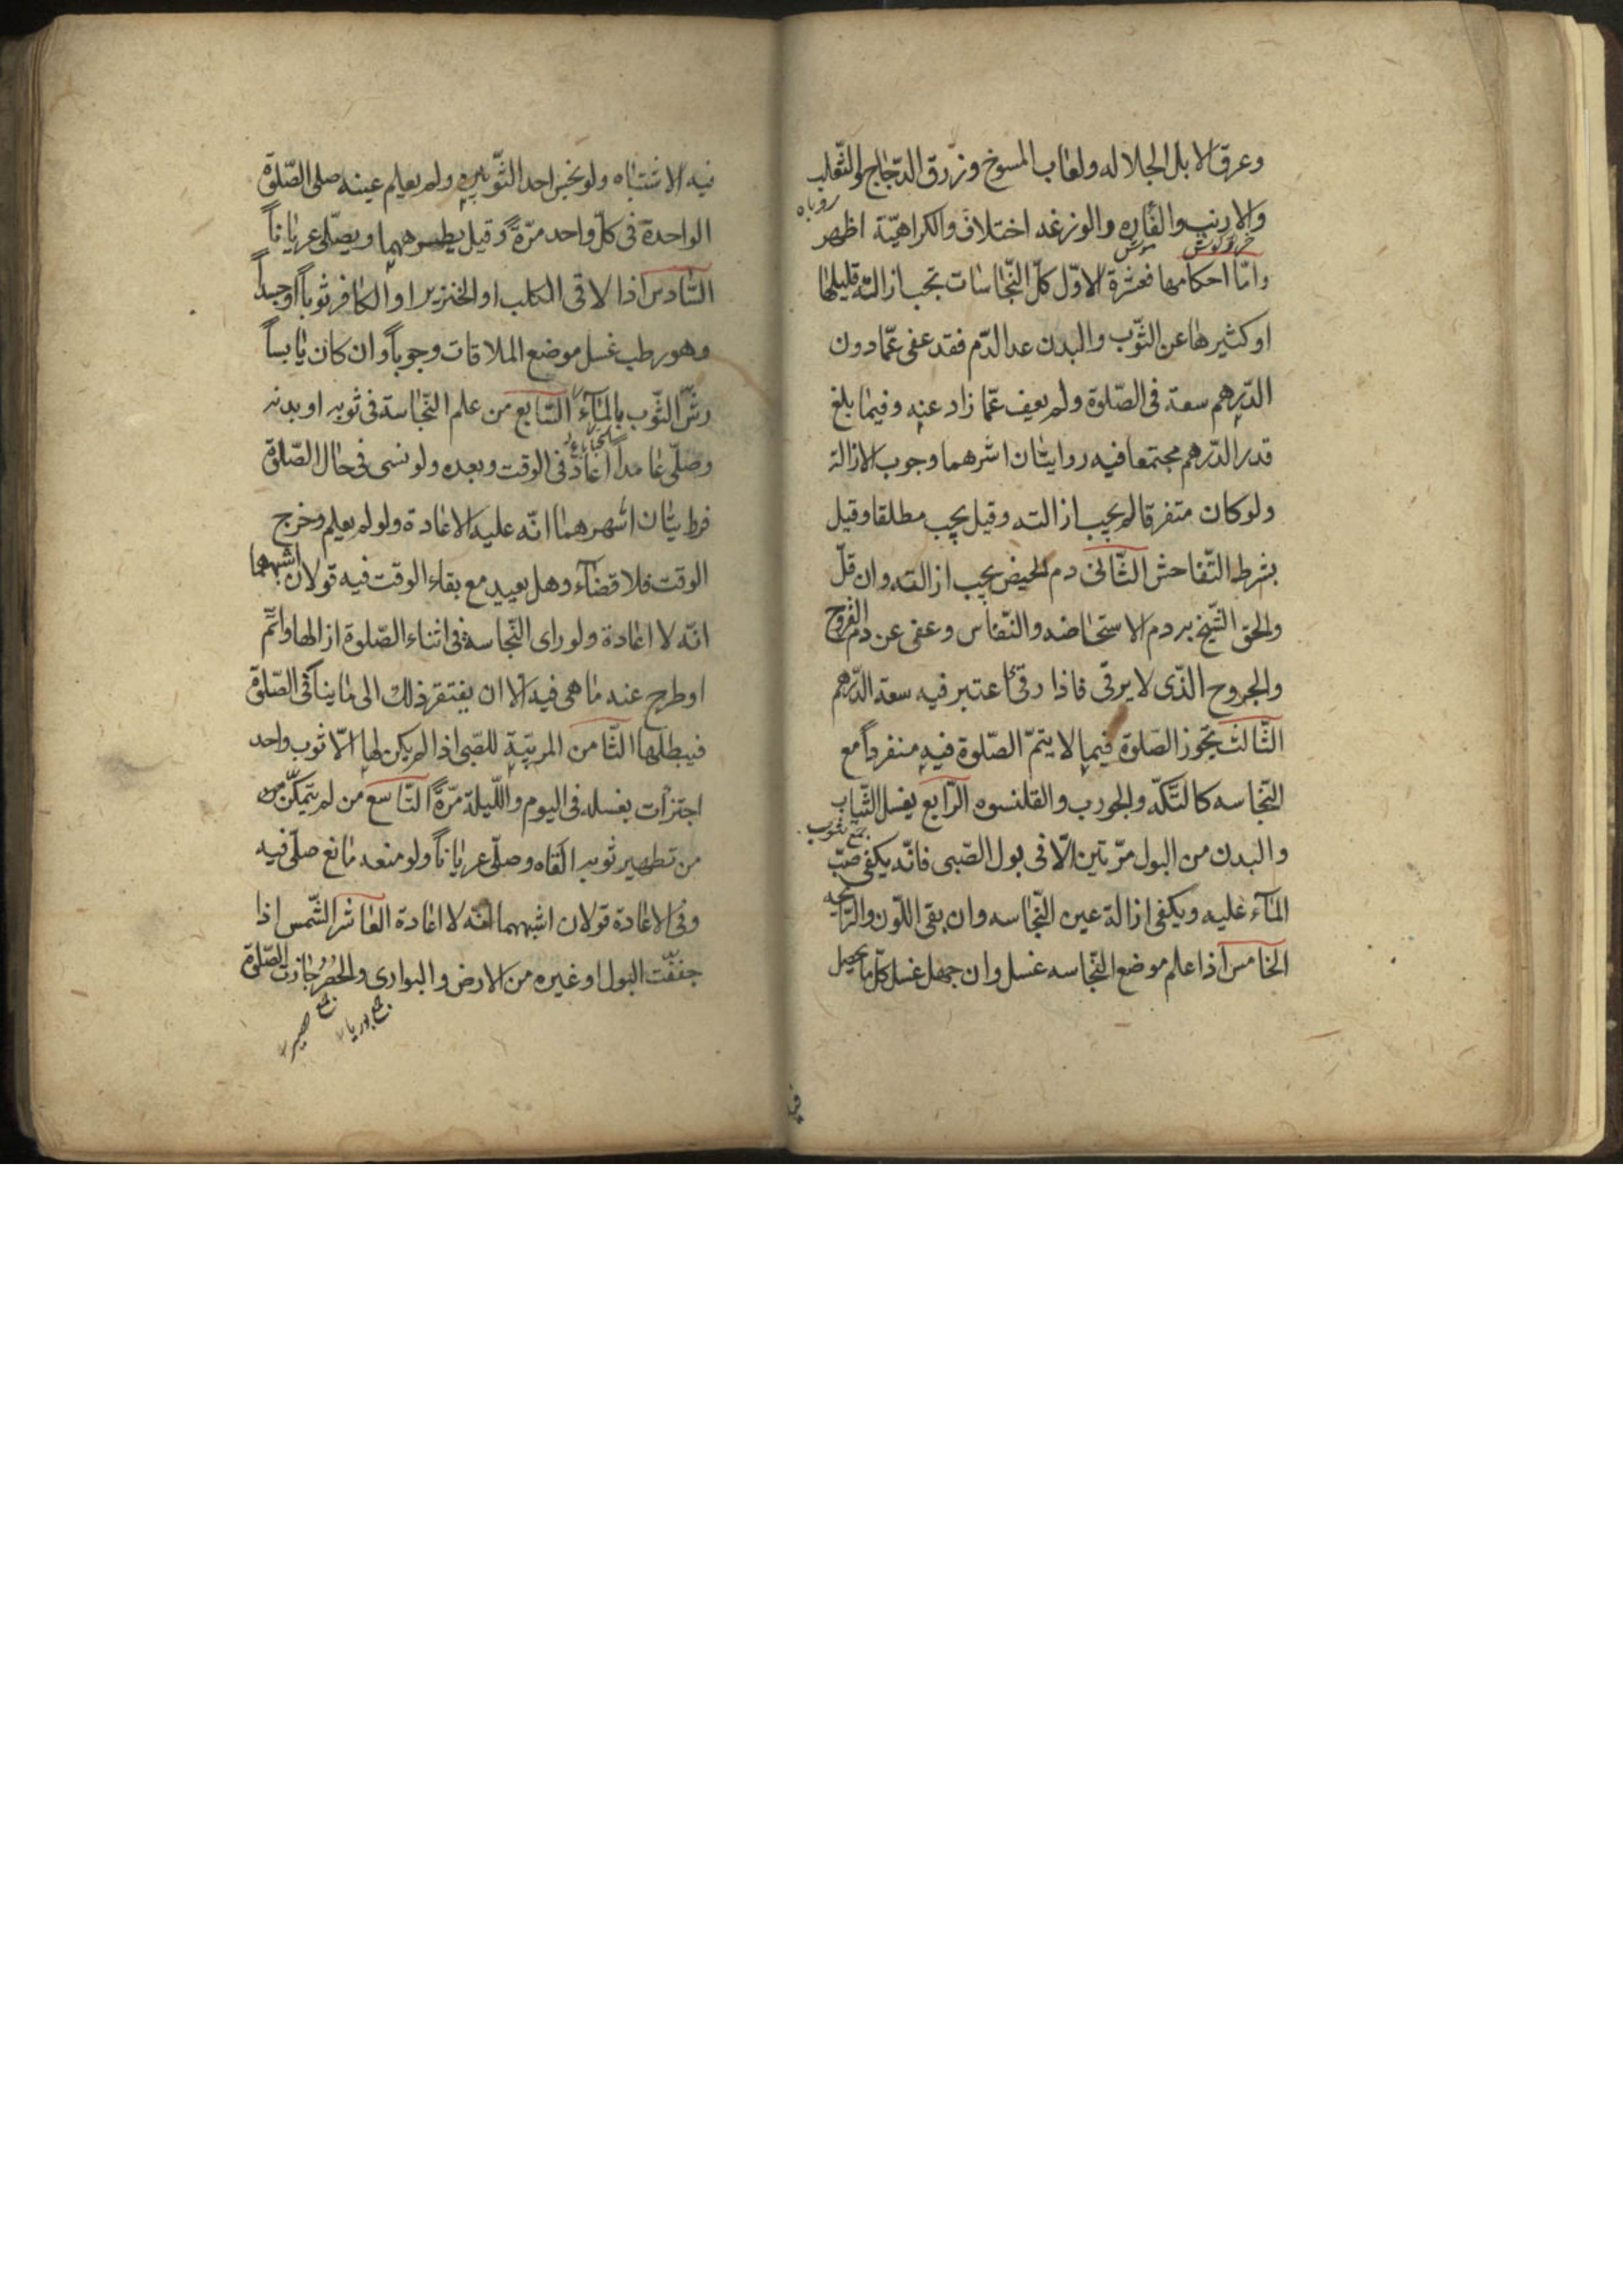 وعرق الابل الجلاله ولعاب المسوخ وزرق الدّجاج والثّعلب
روباه
والارنب والفاره والوزغه اختلاف والكراهيّة اظهر
خرگوش موش
وامّا احكامها فعشرة الاوّل كلّ النّجاسات تجب ازالته قليلها
او كثيرها عن الثّوب والبدن عدا الدّم فقد عفى عمّا دون
الدّرهم سعة فى الصّلوة ولم يعف عمّا زاد عنه وفيما بلغ
قدر الدّرهم مجتمعا فيه روايتان اشهرهما وجوب الازالة
ولو كان متفرقا لم يجب ازالته وقيل يجب مطلقا وقيل
بشرط التّفاحش الثّانى دم الحيض يجب ازالته وان قلّ
والحق الشّيخ به دم الاستحاضه والنّفاس وعفى عن دم القروح
والجروح الّذى لا يرقى فاذا رقئ اعتبر فيه سعة الدّرهم
الثّالث تجوز الصّلوة فيما لا يتمّ الصّلوة فيه منفرداً مع
النّجاسه كالتّكّه والجورب والقلنسوه الرّابع يغسل الثّياب
جمع ثوب
والبدن من البول مرّتين الّا فى بول الصّبى فانّه يكفى صبّ
المآء عليه ويكفى ازالة عين النّجاسه وان بقى اللّون والرّايحه
الخامس اذا علم موضع النّجاسه غسل وان جهل غسل كلّ ما يحصل
فيه الاشتباه ولو نجس احد الثّوبين ولم يعلم عينه صلى الصّلوة
الواحدة فى كلّ واحد مرّةً وقيل يطرحهما ويصلّى عرياناً
السّادس اذا لاقى الكلب او الخنزير او الكافر ثوباً او جسداً
وهو رطب غسل موضع الملاقات وجوباً وان كان يابساً
رشّ الثّوب بالمآء السّابع من علم النّجاسة فى ثوبه او بدنه
وصلّى عامداً اعاد فى الوقت وبعده ولو نسى فى حال الصّلوة
فروايتان اشهرهما انّه عليه الاعادة ولو لم يعلم وخرج
الوقت فلا قضآء وهل يعيد مع بقاء الوقت فيه قولان اشبههما
انّه لا اعادة ولو راى النّجاسة فى اثناء الصّلوة ازالها واتمّ
او طرح عنه ما هى فيه الّا ان يفتقر ذلك الى ما ينافى الصّلوة
فيبطلها الثّامن المربّية للصّبى اذا لم يكن لها الّا ثوب واحد
اجتزأت بغسله فى اليوم واللّيلة مرّةً التّاسع من لم يتمكّن
من تطهير ثوبه القاه وصلّى عرياناً ولو منعه مانع صلّى فيه
وفى الاعادة قولان اشبههما انّه لا اعادة العاشر الشّمس اذا
جفّفت البول او غيره من الارض والبوارى والحصر جازت الصّلوة
جمع بوريا
جمع حصير